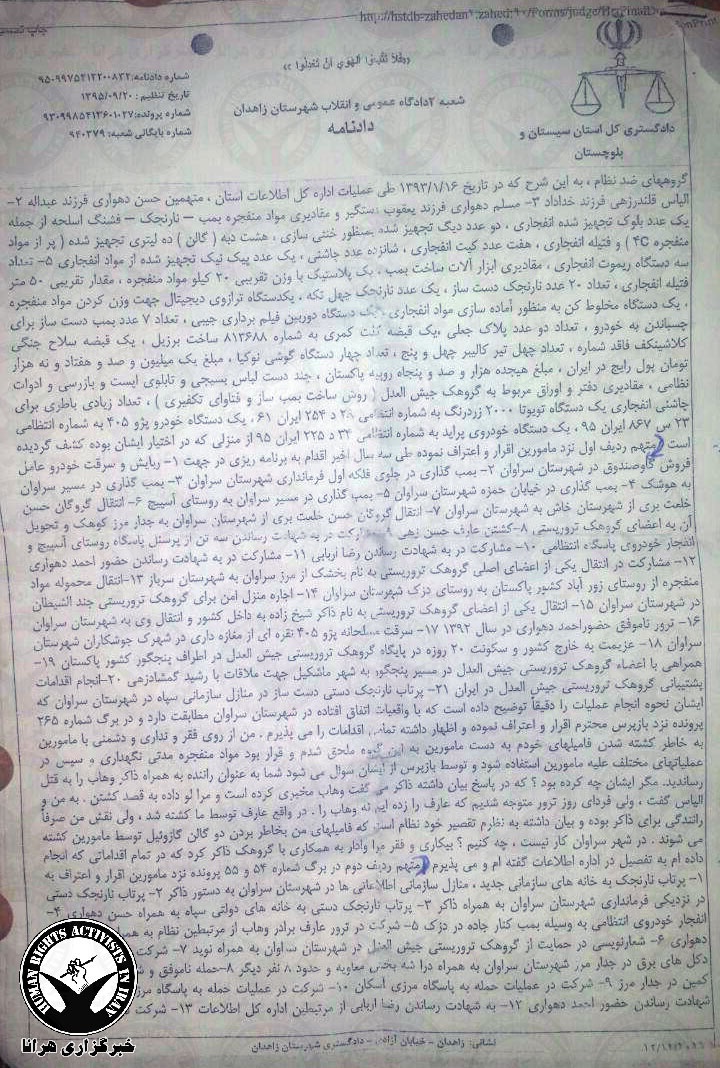 «فلا تتبعوا الهوی ان تعدلوا»
شعبه ۲دادگاه عمومی و انقلاب شهرستان زاهدان
دادنامه
دادگستری کل استان سیستان و
بلوچستان
شماره دادنامه:
تاریخ تنظیم: ۱۳۹۵/۰۹/۲۰
شماره پرونده:
شماره بایگانی شعبه: ۹۴۰۳۷۹
گروههای ضد نظام ، به این شرح که در تاریخ ۱۳۹۳/۱/۱۶ طی عملیات اداره کل اطلاعات استان ، متهمین حسن دهواری فرزند عبداله ۲-
الیاس قلندرزهی فرزند خداداد ۳- مسلم دهواری فرزند یعقوب دستگیر و مقادیری مواد منفجره بمب – نارنجک – فشنگ اسلحه از جمله
یک عدد بلوک تجهیز شده انفجاری ، دو عدد دیگ تجهیز شده بمنظور خنثی سازی ، هشت دبه ( گالن ) ده لیتری تجهیز شده ( پر از مواد
منفجره C4 ) و فتیله انفجاری ، هفت عدد کیت انفجاری ، شانزده عدد چاشنی ، یک عدد پیک نیک تجهیز شده از مواد انفجاری ۵- تعداد
سه دستگاه ریموت انفجاری ، مقادیری ابزار آلات ساخت بمب ، یک پلاستیک با وزن تقریبی ۲۰ کیلو مواد منفجره ، مقدار تقریبی ۵۰ متر
فتیله انفجاری ، تعداد ۲۰ عدد نارنجک دست ساز ، یک عدد نارنجک چهل تکه ، یکدستگاه ترازوی دیجیتال جهت وزن کردن مواد منفجره
، یک دستگاه مخلوط کن به منظور آماده سازی مواد انفجاری ، یک دستگاه دوربین فیلم برداری جیبی ، تعداد ۷ عدد بمب دست ساز برای
چسباندن به خودرو ، تعداد دو عدد پلاک جعلی ،یک قبضه کلت کمری به شماره ۸۱۳۶۸۸ ساخت برزیل ، یک قبضه سلاح جنگی
کلاشینکف فاقد شماره ، تعداد چهل تیر کالیبر چهل و پنج ، تعداد چهار دستگاه گوشی نوکیا ، مبلغ یک میلیون و صد و هفتاد و نه هزار
تومان پول رایج در ایران ، مبلغ هیجده هزار و صد و پنجاه روپیه پاکستان ، چند دست لباس بسیجی و تابلوی ایست و بازرسی و ادوات
نظامی ، مقادیری دفتر و اوراق مربوط به گروهک جیش العدل ( روش ساخت بمب ساز و فتاوای تکفیری ) ، تعداد زیادی باطری برای
چاشنی انفجاری یک دستگاه تویوتا ۲۰۰۰ زردرنگ به شماره انتظامی د ۲۵۴ ایران ۶۱ ، یک دستگاه خودرو پژو ۴۰۵ به شماره انتظامی
۲۳ س ۸۶۷ ایران ۹۵ ، یک دستگاه خودروی پراید به شماره انتظامی ۳۳ د ۲۲۵ ایران ۹۵ از منزلی که در اختیار ایشان بوده کشف گردیده
است . متهم ردیف اول نزد مامورین اقرار و اعتراف نموده طی سه سال اخیر اقدام به برنامه ریزی در جهت ۱- ربایش و سرقت خودرو عامل
فروش گاوصندوق در شهرستان سراوان ۲- بمب گذاری در جلوی فلکه اول فرمانداری شهرستان سراوان ۳- بمب گذاری در مسیر سراوان
به هوشک ۴- بمب گذاری در خیابان حمزه شهرستان سراوان ۵- بمب گذاری در مسیر سراوان به روستای آسپیچ ۶- انتقال گروگان حسن
خلعت بری از شهرستان خاش به شهرستان سراوان ۷- انتقال گروگان حسن خلعت بری از شهرستان سراوان به جدار مرز کوهک و تحویل
آن به اعضای گروهک تروریستی ۸-کشتن عارف حسن زهی مشارکت در به شهادت رساندن سه تن از پرسنل پاسگاه روستای آسپیچ و
انفجار خودروی پاسگاه انتظامی ۱۰- مشارکت در به شهادت رساندن رضا اربابی ۱۱- مشارکت در به شهادت رساندن حضور احمد دهواری
۱۲- مشارکت در انتقال یکی از اعضای اصلی گروهک تروریستی به نام بخشک از مرز سراوان به شهرستان سرباز ۱۳-انتقال محموله مواد
منفجره از روستای زور آباد کشور پاکستان به روستای دزک شهرستان سراوان ۱۴- اجاره منزل امن برای گروهک تروریستی جند الشیطان
در شهرستان سراوان ۱۵- انتقال یکی از اعضای گروهک تروریستی به نام ذاکر شیخ زاده به داخل کشور و انتقال وی به شهرستان سراوان
۱۶- ترور ناموفق حضوراحمد دهواری در سال ۱۳۹۲ ۱۷- سرقت مسلحانه پژو ۴۰۵ نقره ای از مغازه داری در شهرک جوشکاران شهرستان
سراوان ۱۸- عزیمت به خارج کشور و سکونت ۲۰ روزه در پایگاه گروهک تروریستی جیش العدل در اطراف پنجگور کشور پاکستان ۱۹-
همراهی با اعضاء گروهک تروریستی جیش العدل در مسیر پنجگور به شهر ماشکیل جهت ملاقات با رشید گمشادزهی ۲۰-انجام اقدامات
پشتیبانی گروهک تروریستی جیش العدل در ایران ۲۱- پرتاب نارنجکی دستی دست ساز در منازل سازمانی سپاه در شهرستان سراوان که
ایشان نحوه انجام عملیات را دقیقاً توضیح داده است که با واقعیات اتفاق افتاده در شهرستان سراوان مطابقت دارد و در برگ شماره ۲۶۵
پرونده نزد بازپرس محترم اقرار و اعتراف نموده و اظهار داشته تمامی اقدامات را می پذیرم . من از روی فقر و نداری و دشمنی با مامورین
به خاطر کشته شدن فامیلهای خودم به دست مامورین به این گروه ملحق شدم و قرار بود مواد منفجره مدتی نگهداری و سپس در
عملیاتهای مختلف علیه مامورین استفاده شود و توسط بازپرس از ایشان سوال می شود شما به عنوان راننده به همراه ذاکر وهاب را به قتل
رساندید. مگر ایشان چه کرده بود ؟ که در پاسخ بیان داشته ذاکر می گفت وهاب مخبری کرده است و مرا لو داده به قصد کشتن . به من و
الیاس گفت ، ولی فردای روز ترور متوجه شدیم که عارف را زده ایم نه وهاب را . در واقع عارف توسط ما کشته شد ، ولی نقش من صرفاً
رانندگی برای ذاکر بوده و بیان داشته به نظرم تقصیر خود نظام است که فامیلهای من بخاطر بردن دو گالن گازوئیل توسط مامورین کشته
می شوند . در شهر سراوان کار نیست ، چه کنیم ؟ بیکاری و فقر مرا وادار به همکاری با گروهک ذاکر کرد که در تمام اقداماتی که انجام
داده ام به تفصیل در اداره اطلاعات گفته ام و می پذیرم . متهم ردیف دوم در برگ شماره ۵۴ و ۵۵ پرونده نزد مامورین اقرار و اعتراف به
۱- پرتاب نارنجک به خانه های سازمانی جدید ، منازل سازمانی اطلاعاتی ها در شهرستان سراوان به دستور ذاکر ۲- پرتاب نارنجک دستی
در نزدیکی فرمانداری شهرستان سراوان به همراه ذاکر ۳- پرتاب نارنجک دستی به خانه های دولتی سپاه به همراه حسن دهواری ۴-
انفجار خودروی انتظامی به وسیله بمب کنار جاده در دزک ۵- شرکت در ترور عارف برادر وهاب از مرتبطین نظام به همراه
دهواری ۶- شعارنویسی در حمایت از گروهک تروریستی جیش العدل در شهرستان سراوان به همراه نوید ۷- شرکت
دکل های برق در جدار مرز شهرستان سراوان به همراه معاویه و حدود ۸ نفر دیگر ۸-حمله ناموفق و
کمین در جدار مرز ۹- شرکت در عملیات حمله به پاسگاه مرزی اسکان ۱۰- شرکت در عملیات حمله به پاسگاه
شهادت رساندن حضور احمد دهواری ۱۲- به شهادت رساندن رضا اربابی از مرتبطین اداره کل اطلاعات ۱۳- شرکت
نشانی: زاهدان – خیابان آزادی – دادگستری شهرستان زاهدان
HUMAN RIGHTS ACTIVISTS IN IRAN
خبرگزاری هرانا